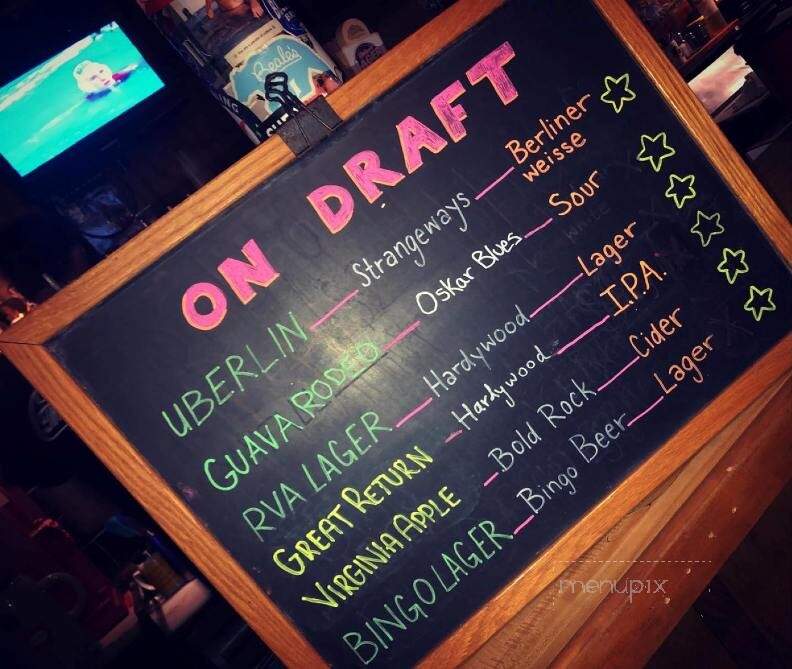 Beale's
ON DRAFT
UBERLIN Strangeways Berliner
weisse
GUAVA RODEO Oskar Blues Sour
RVA LAGER Hardywood Lager
GREAT RETURN Hardywood I.P.A.
VIRGINIA APPLE Bold Rock Cider
BINGO LAGER Bingo Beer Lager
menupix